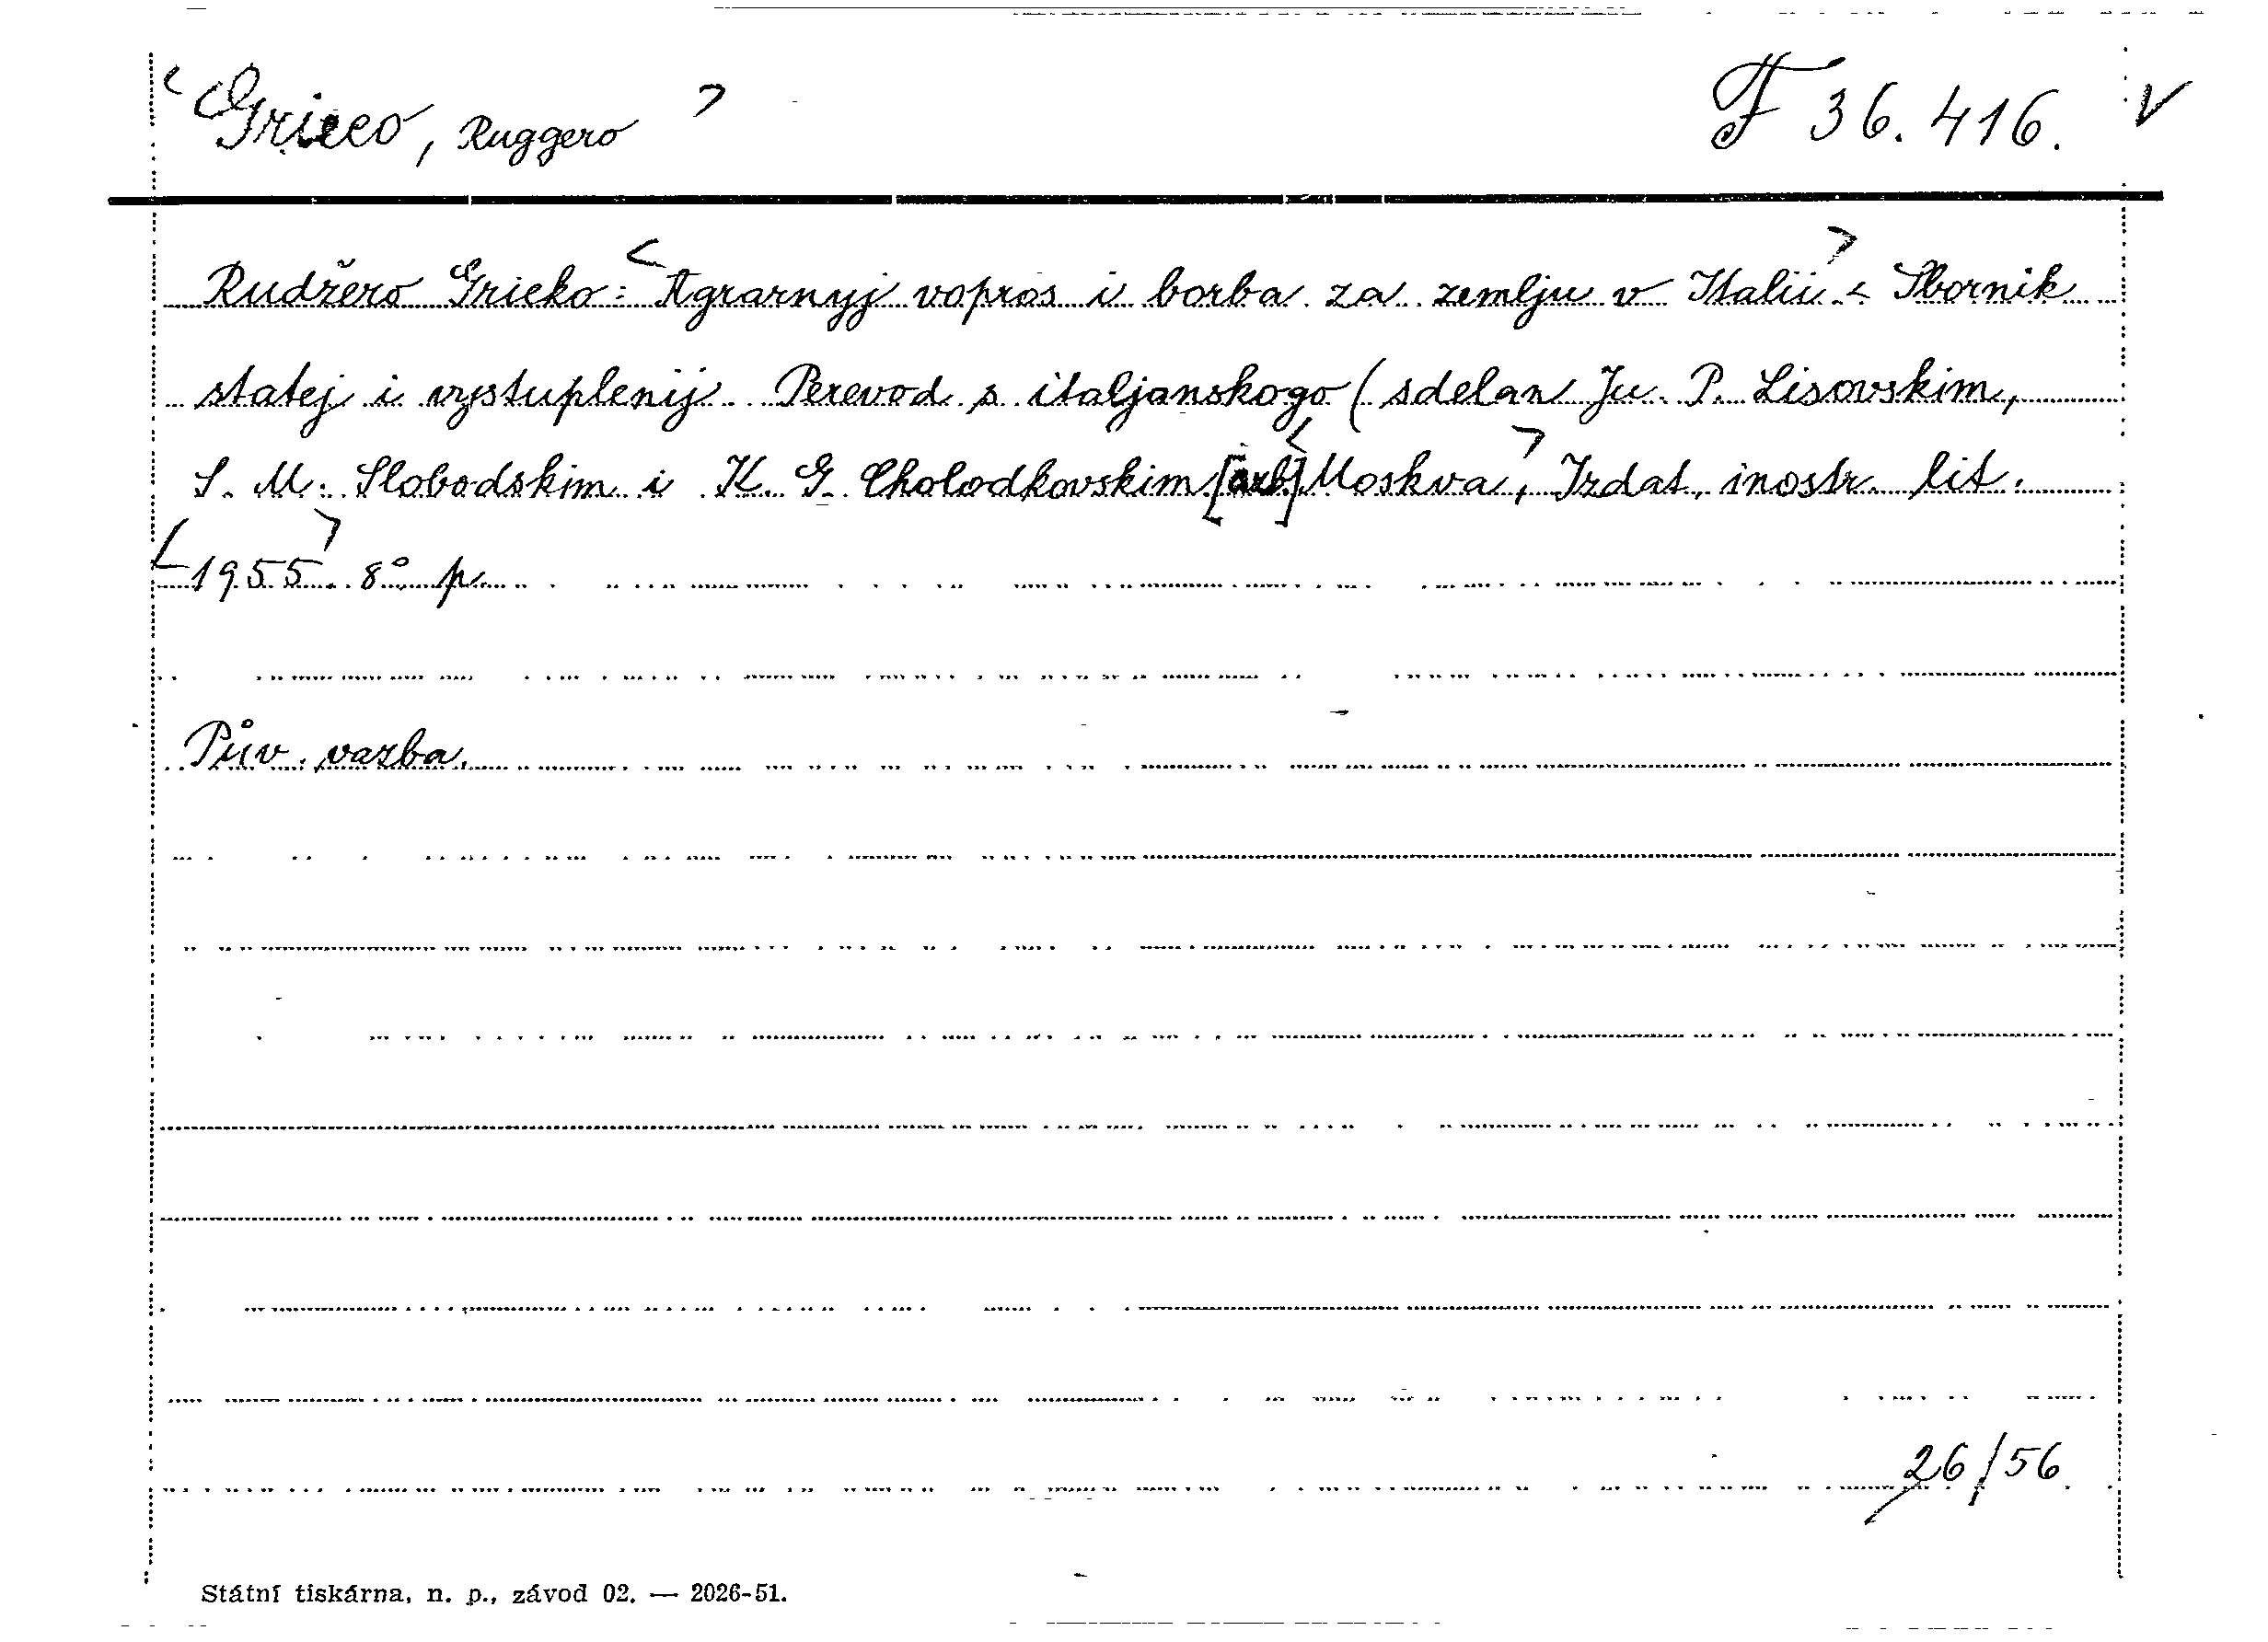 < Grieco, Ruggero > F 36.416. V
Rudžero Grieko: <Agrarnyj vopros i borba za zemlju v Italii>. < Sbornik
statej i vystuplenij. Perevod s italjanskogo (sdelan Ju. P. Lisovskim,
S. M. Slobodskim i K. G. Cholodkovskim <Moskva>, Izdat. inostr. lit.
<1955>. 8° p.
Pův. vazba.
26/56
Státní tiskárna, n. p., závod 02. — 2026-51.